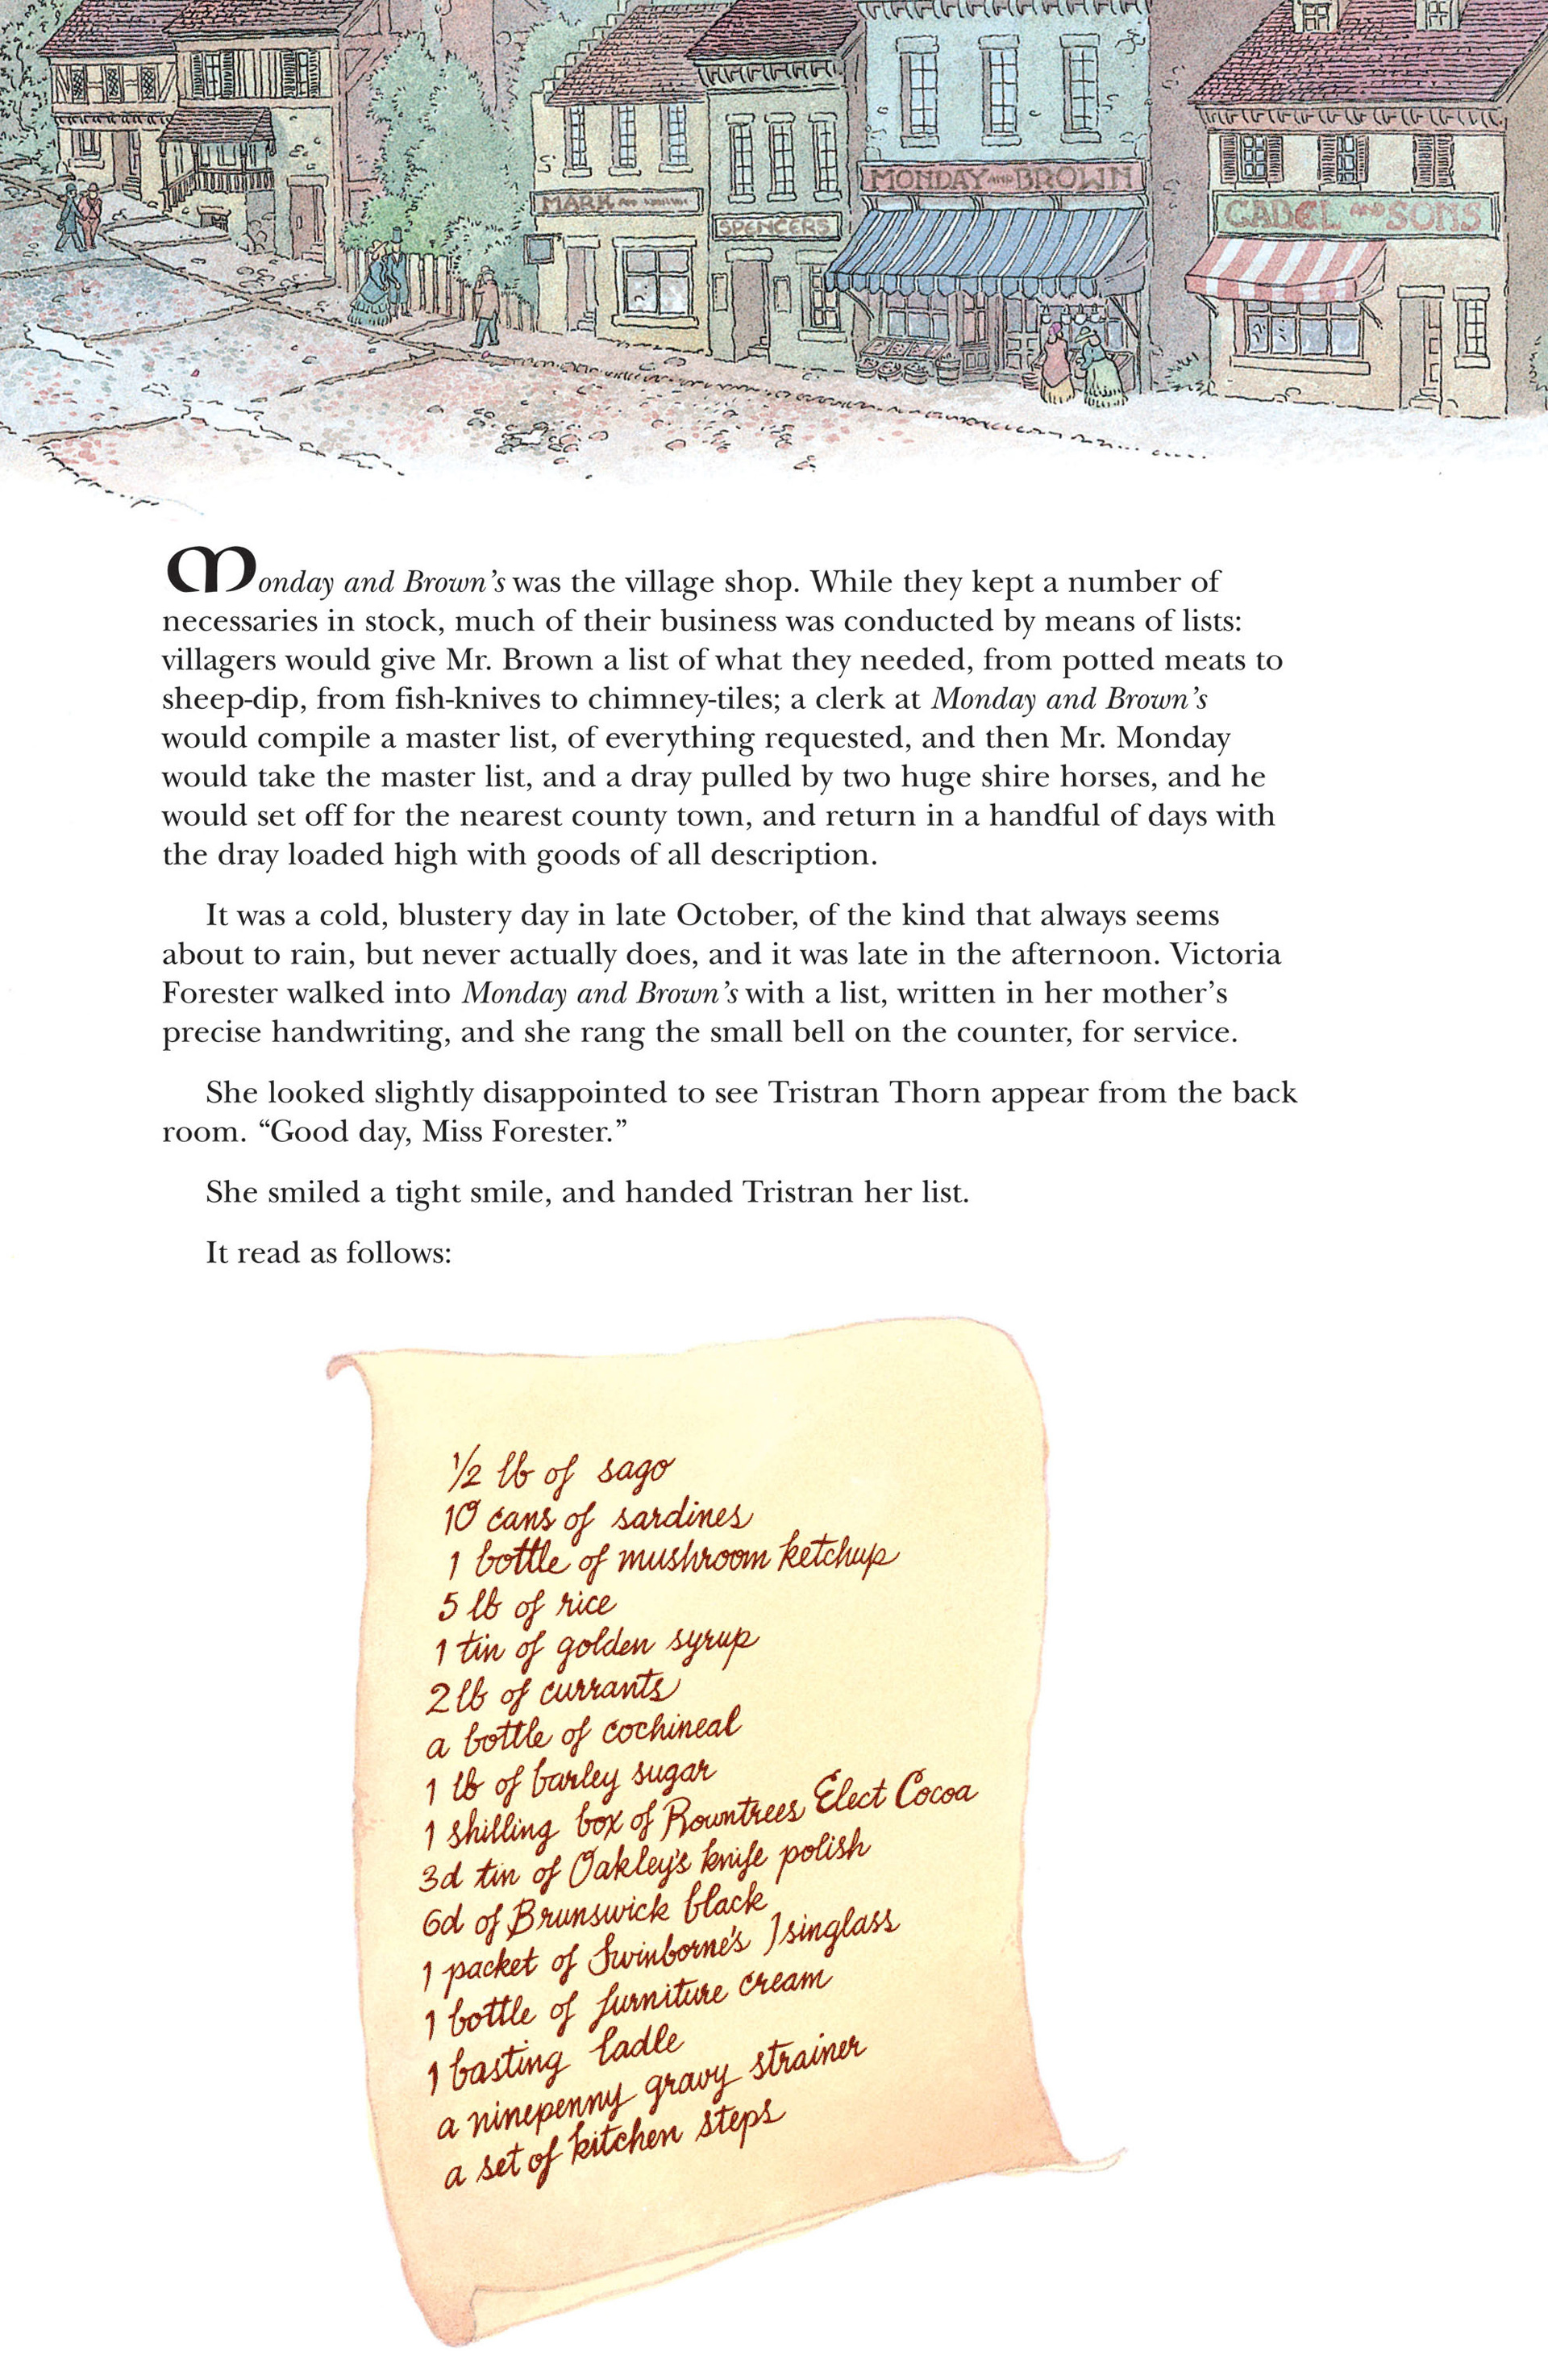 MARK AND
SPENCERS
MONDAY AND BROWN
CADEL AND SONS
Monday and Brown’s was the village shop. While they kept a number of
necessaries in stock, much of their business was conducted by means of lists:
villagers would give Mr. Brown a list of what they needed, from potted meats to
sheep-dip, from fish-knives to chimney-tiles; a clerk at Monday and Brown’s
would compile a master list, of everything requested, and then Mr. Monday
would take the master list, and a dray pulled by two huge shire horses, and he
would set off for the nearest county town, and return in a handful of days with
the dray loaded high with goods of all description.
It was a cold, blustery day in late October, of the kind that always seems
about to rain, but never actually does, and it was late in the afternoon. Victoria
Forester walked into Monday and Brown’s with a list, written in her mother’s
precise handwriting, and she rang the small bell on the counter, for service.
She looked slightly disappointed to see Tristran Thorn appear from the back
room. “Good day, Miss Forester.”
She smiled a tight smile, and handed Tristran her list.
It read as follows:
½ lb of sago
10 cans of sardines
1 bottle of mushroom ketchup
5 lb of rice
1 tin of golden syrup
2 lb of currants
a bottle of cochineal
1 lb of barley sugar
1 shilling box of Rowntrees Elect Cocoa
3d tin of Oakley's knife polish
6d of Brunswick black
1 packet of Swinborne's Isinglass
1 bottle of furniture cream
1 basting ladle
a ninepenny gravy strainer
a set of kitchen steps